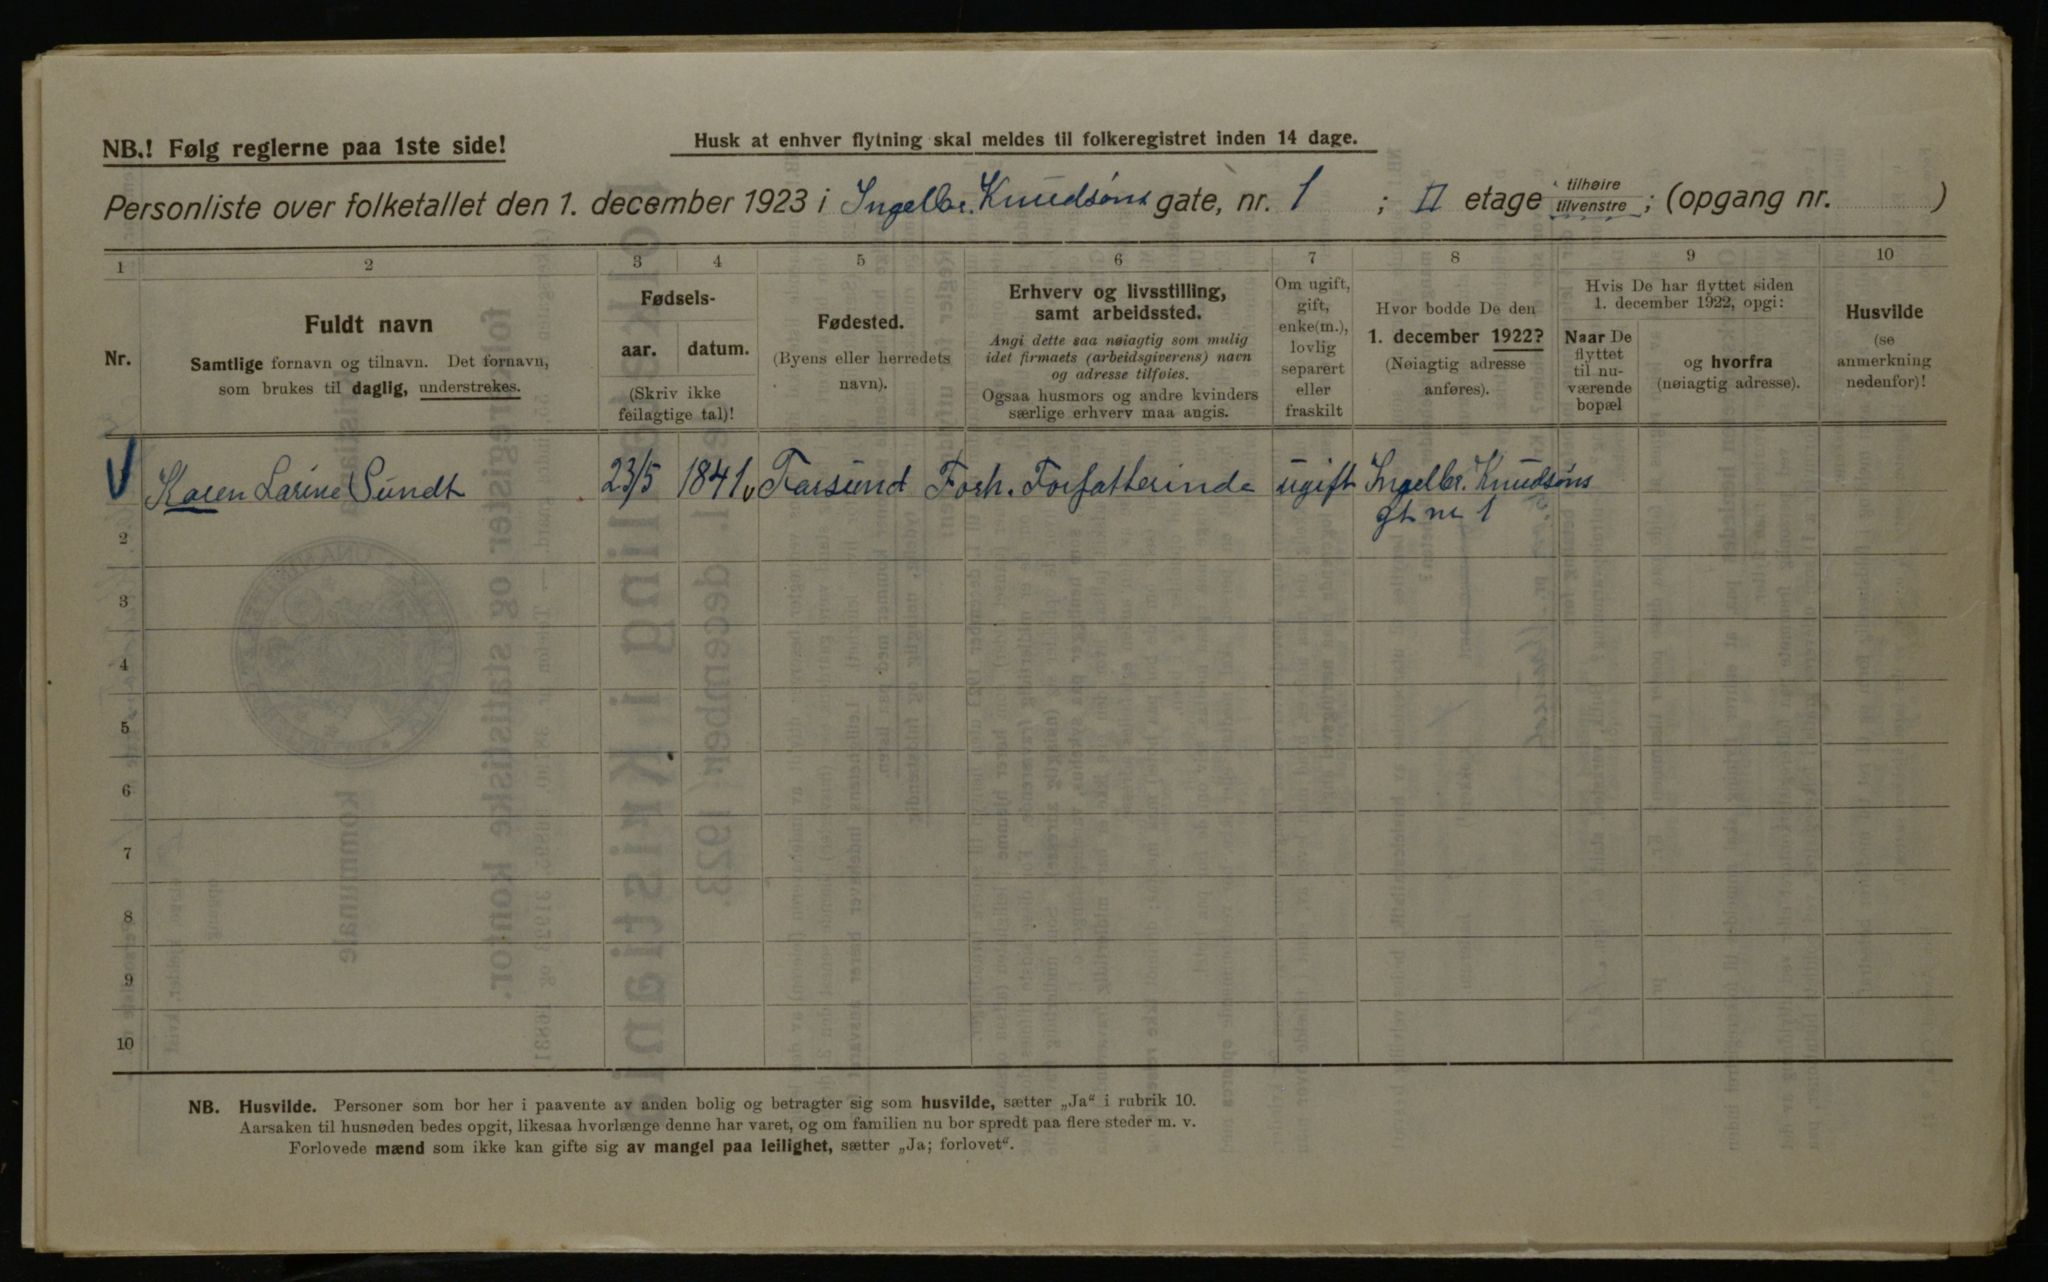 NB.! Følg reglerne paa 1ste side!
Husk at enhver flytning skal meldes til folkeregistret inden 14 dage.
Personliste over folketallet den 1. december 1923 i Ingelbr. Knudsøns gate, nr. 1 ; II etage tilhøire tilvenstre ; (opgang nr. )
1 2 3 4 5 6 7 8 9 10
Nr.
Fuldt navn
Samtlige fornavn og tilnavn. Det fornavn,
som brukes til daglig, understrekes.
Fødsels-
aar. datum.
(Skriv ikke
feilagtige tal)!
Fødested.
(Byens eller herredets
navn).
Erhverv og livsstilling,
samt arbeidssted.
Angi dette saa nøiagtig som mulig
idet firmaets (arbeidsgiverens) navn
og adresse tilføies.
Ogsaa husmors og andre kvinders
særlige erhverv maa angis.
Om ugift,
gift,
enke(m.),
lovlig
separert
eller
fraskilt
Hvor bodde De den
1. december 1922?
(Nøiagtig adresse
anføres).
Hvis De har flyttet siden
1. december 1922, opgi:
Naar De
flyttet
til nu-
værende
bopæl
og hvorfra
(nøiagtig adresse).
Husvilde
(se
anmerkning
nedenfor)!
Karen Larine Sundt 23/5 1841 Farsund Forh. Forfatterinde ugift Ingelbr. Knudsøns
gt nr 1
2
3
4
5
6
7
8
9
10
NB. Husvilde. Personer som bor her i paavente av anden bolig og betragter sig som husvilde, sætter „Ja" i rubrik 10.
Aarsaken til husnøden bedes opgit, likesaa hvorlænge denne har varet, og om familien nu bor spredt paa flere steder m. v.
Forlovede mænd som ikke kan gifte sig av mangel paa leilighet, sætter „Ja; forlovet".